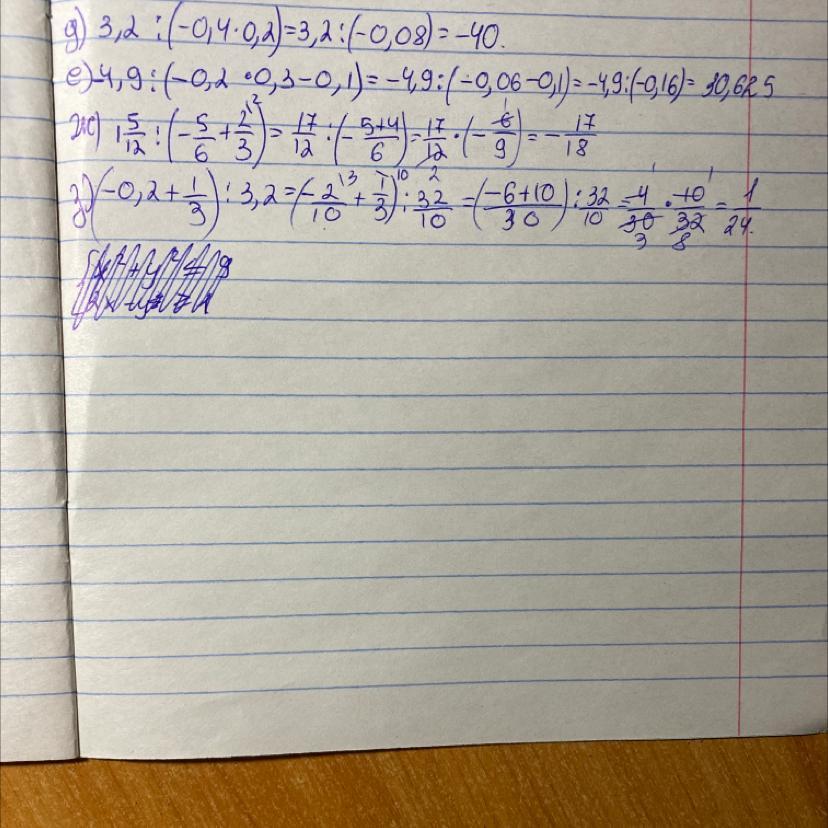 д) 3,2 : (-0,4·0,2)=3,2:(-0,08)= -40.
е) -4,9 : (-0,2·0,3-0,1)= -4,9:(-0,06-0,1)= -4,9:(-0,16)= 30,625
ж) 1 5/12 : (-5/6 + 2/3 \2) = 17/12 : (-5+4/6) = 17/12 · (-6/9) = -17/18
з) (-0,2 + 1/3) : 3,2 = (-2/10 \3 + 1/3 \10) : 32/10 = (-6+10/30) : 32/10 = 4/30 · 10/32 = 1/24.